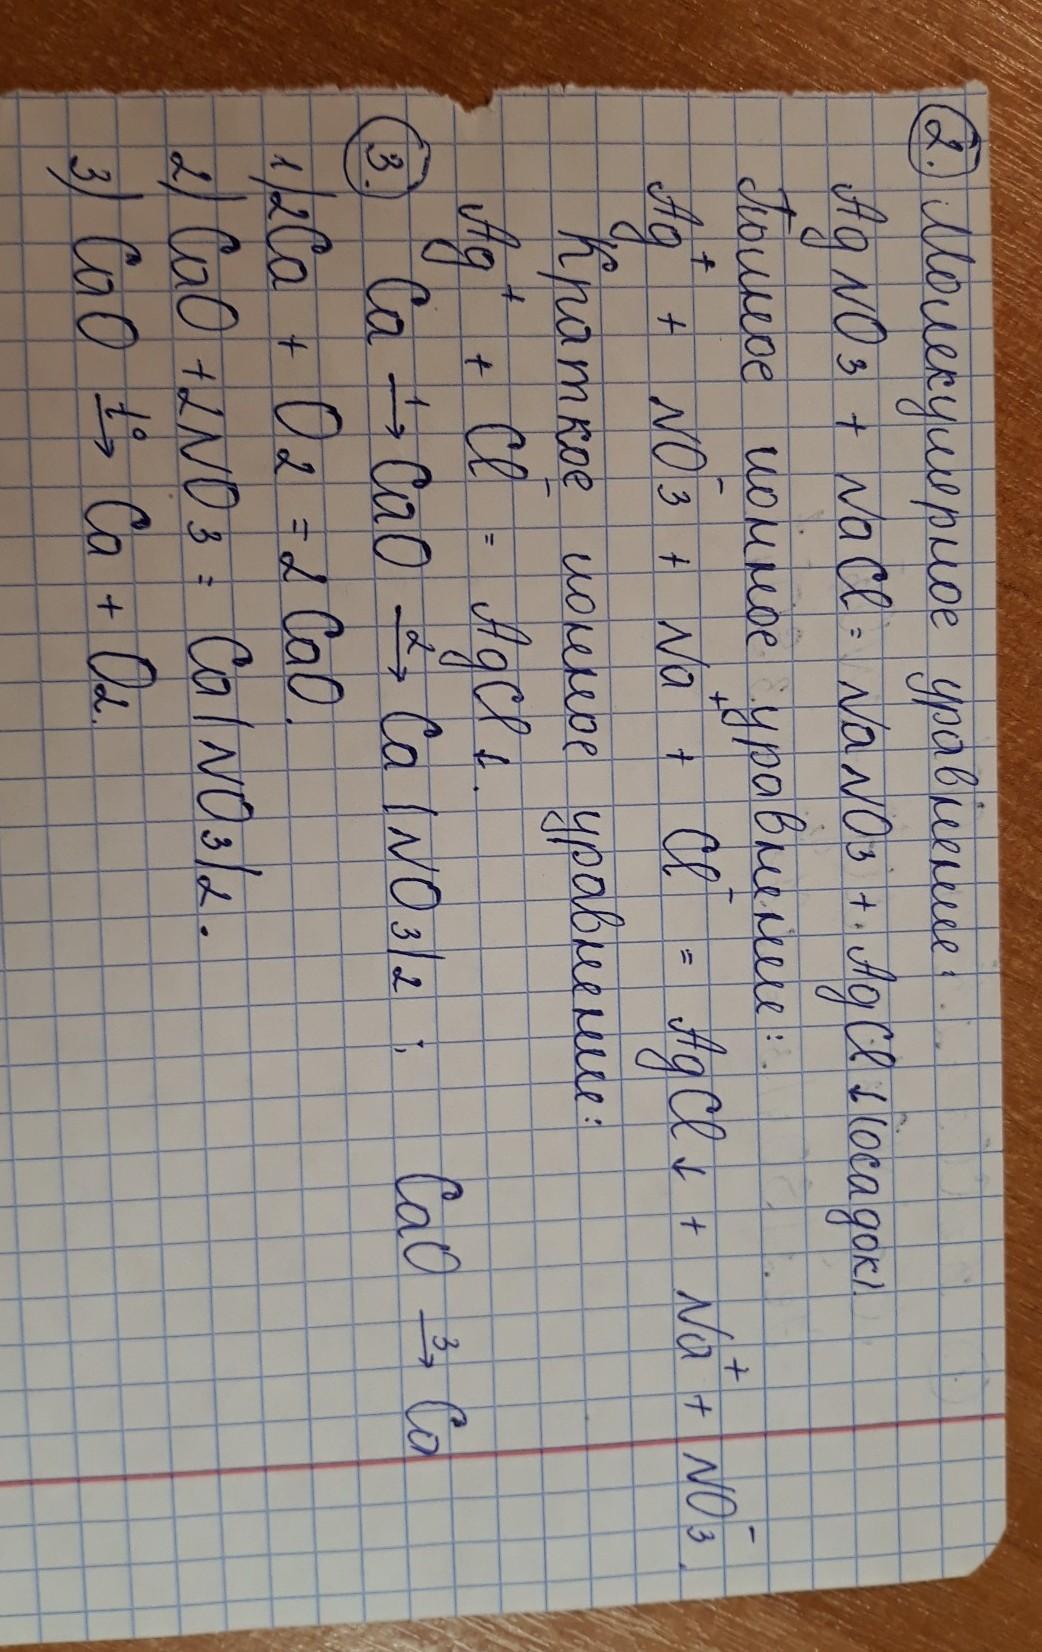 2. Молекулярное уравнение:
AgNO3 + NaCl = NaNO3 + AgCl↓ (осадок).
Полное ионное уравнение:
Ag⁺ + NO3⁻ + Na⁺ + Cl⁻ = AgCl↓ + Na⁺ + NO3⁻.
Краткое ионное уравнение:
Ag⁺ + Cl⁻ = AgCl↓.
3. Ca 1→ CaO 2→ Ca(NO3)2 ; CaO 3→ Ca
1) 2Ca + O2 = 2CaO.
2) CaO + 2NO3 = Ca(NO3)2.
3) CaO t°→ Ca + O2.